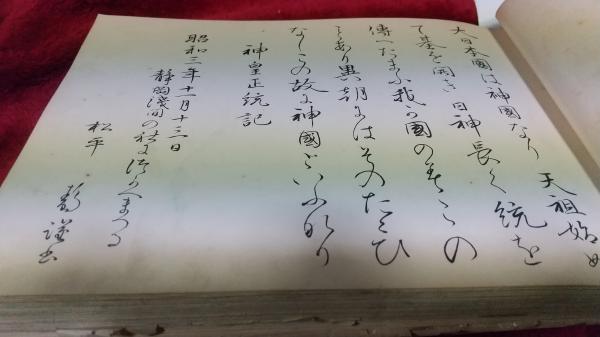 大日本國は神國なり 天祖始め
て基を開き日神長く統を
傳へたまふ我が國のみこの
ことあり異朝にはそのたくひ
なしこの故に神國といふなり
神皇正統記
昭和三年十一月十三日
静岡浅間の社につかへまつる
松平 謹書